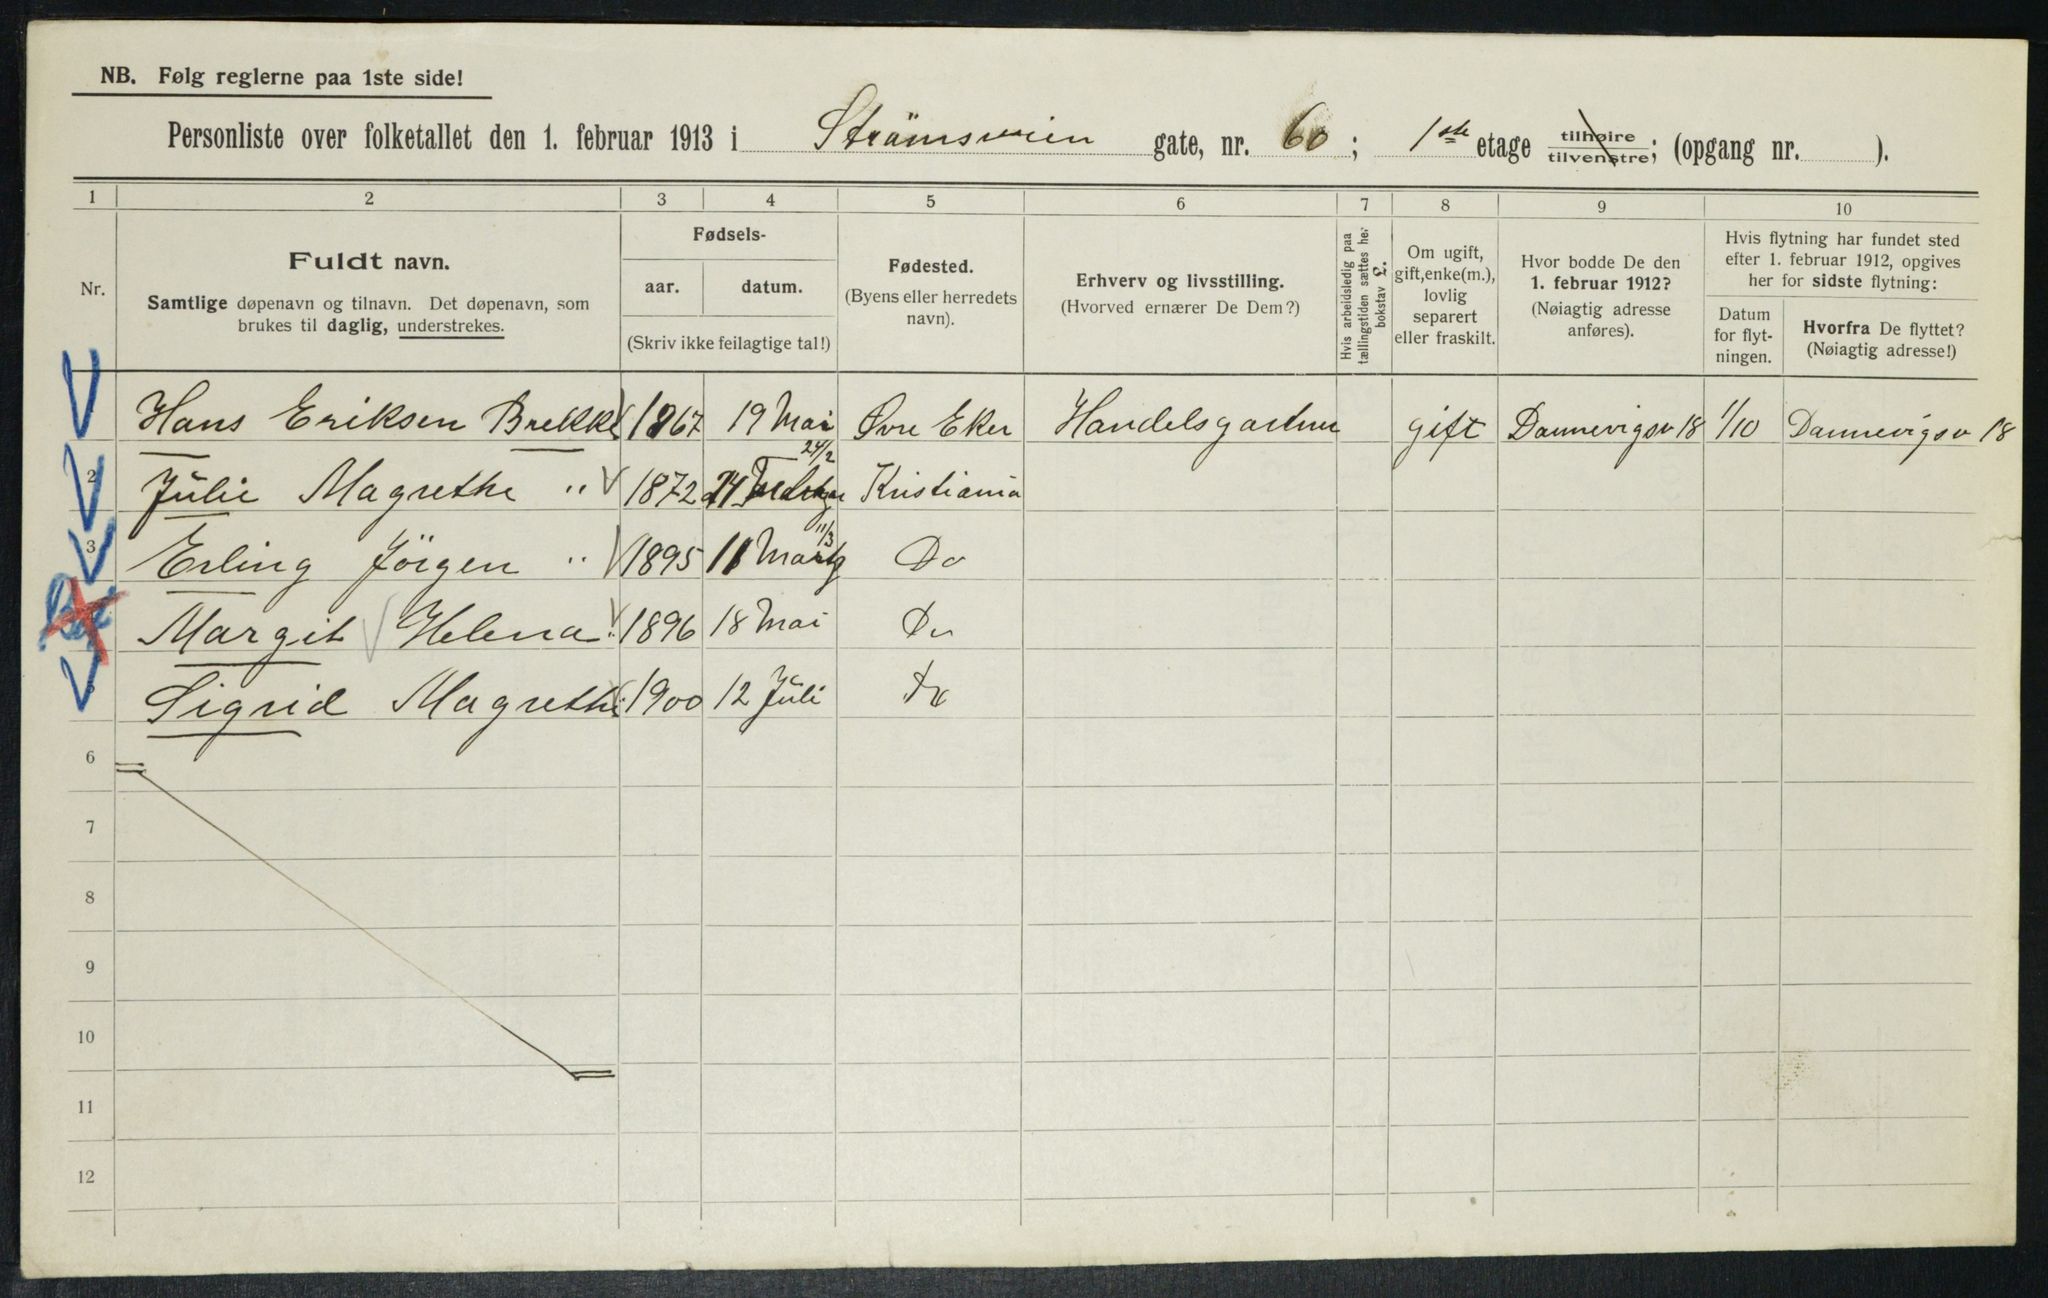 NB. Følg reglerne paa 1ste side!
Personliste over folketallet den 1. februar 1913 i Strömsveien gate, nr. 60; 1ste etage tilhøire/tilvenstre; (opgang nr. ).
1 2 3 4 5 6 7 8 9 10
Nr.
Fuldt navn.
Samtlige døpenavn og tilnavn. Det døpenavn, som
brukes til daglig, understrekes.
Fødsels-
aar. datum.
(Skriv ikke feilagtige tal!)
Fødested.
(Byens eller herredets
navn).
Erhverv og livsstilling.
(Hvorved ernærer De Dem?)
Hvis arbeidsledig paa
tællingstiden sættes her
bokstav L.
Om ugift,
gift, enke(m.),
lovlig
separert
eller fraskilt.
Hvor bodde De den
1. februar 1912?
(Nøiagtig adresse
anføres).
Hvis flytning har fundet sted
efter 1. februar 1912, opgives
her for sidste flytning:
Datum
for flyt-
ningen.
Hvorfra De flyttet?
(Nøiagtig adresse!)
Hans Eriksen Brekke 1867 19 Mai Øvre Eker Handelsgartner gift Dannevigsv 18 1/10 Dannevigsv 18
24/2
2 Julie Magrethe " 1872 24 Kristiania
11/3
3 Erling Jörgen " 1895 11 Marts Do
Margit Helena " 1896 18 Mai Do
5 Sigrid Magrethe " 1900 12 Juli Do
6
7
8
9
10
11
12